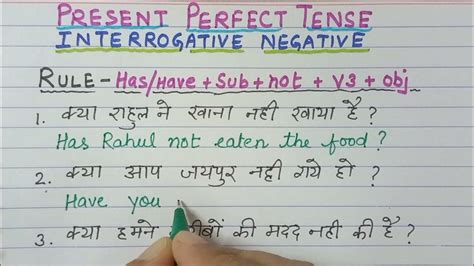 PRESENT PERFECT TENSE
INTERROGATIVE NEGATIVE
RULE - Has/Have + Sub + not + V3 + obj
1. क्या राहुल ने खाना नही खाया है ?
Has Rahul not eaten the food ?
2. क्या आप जयपुर नही गये हो ?
Have you
3. क्या हमने की मदद नही की है ?